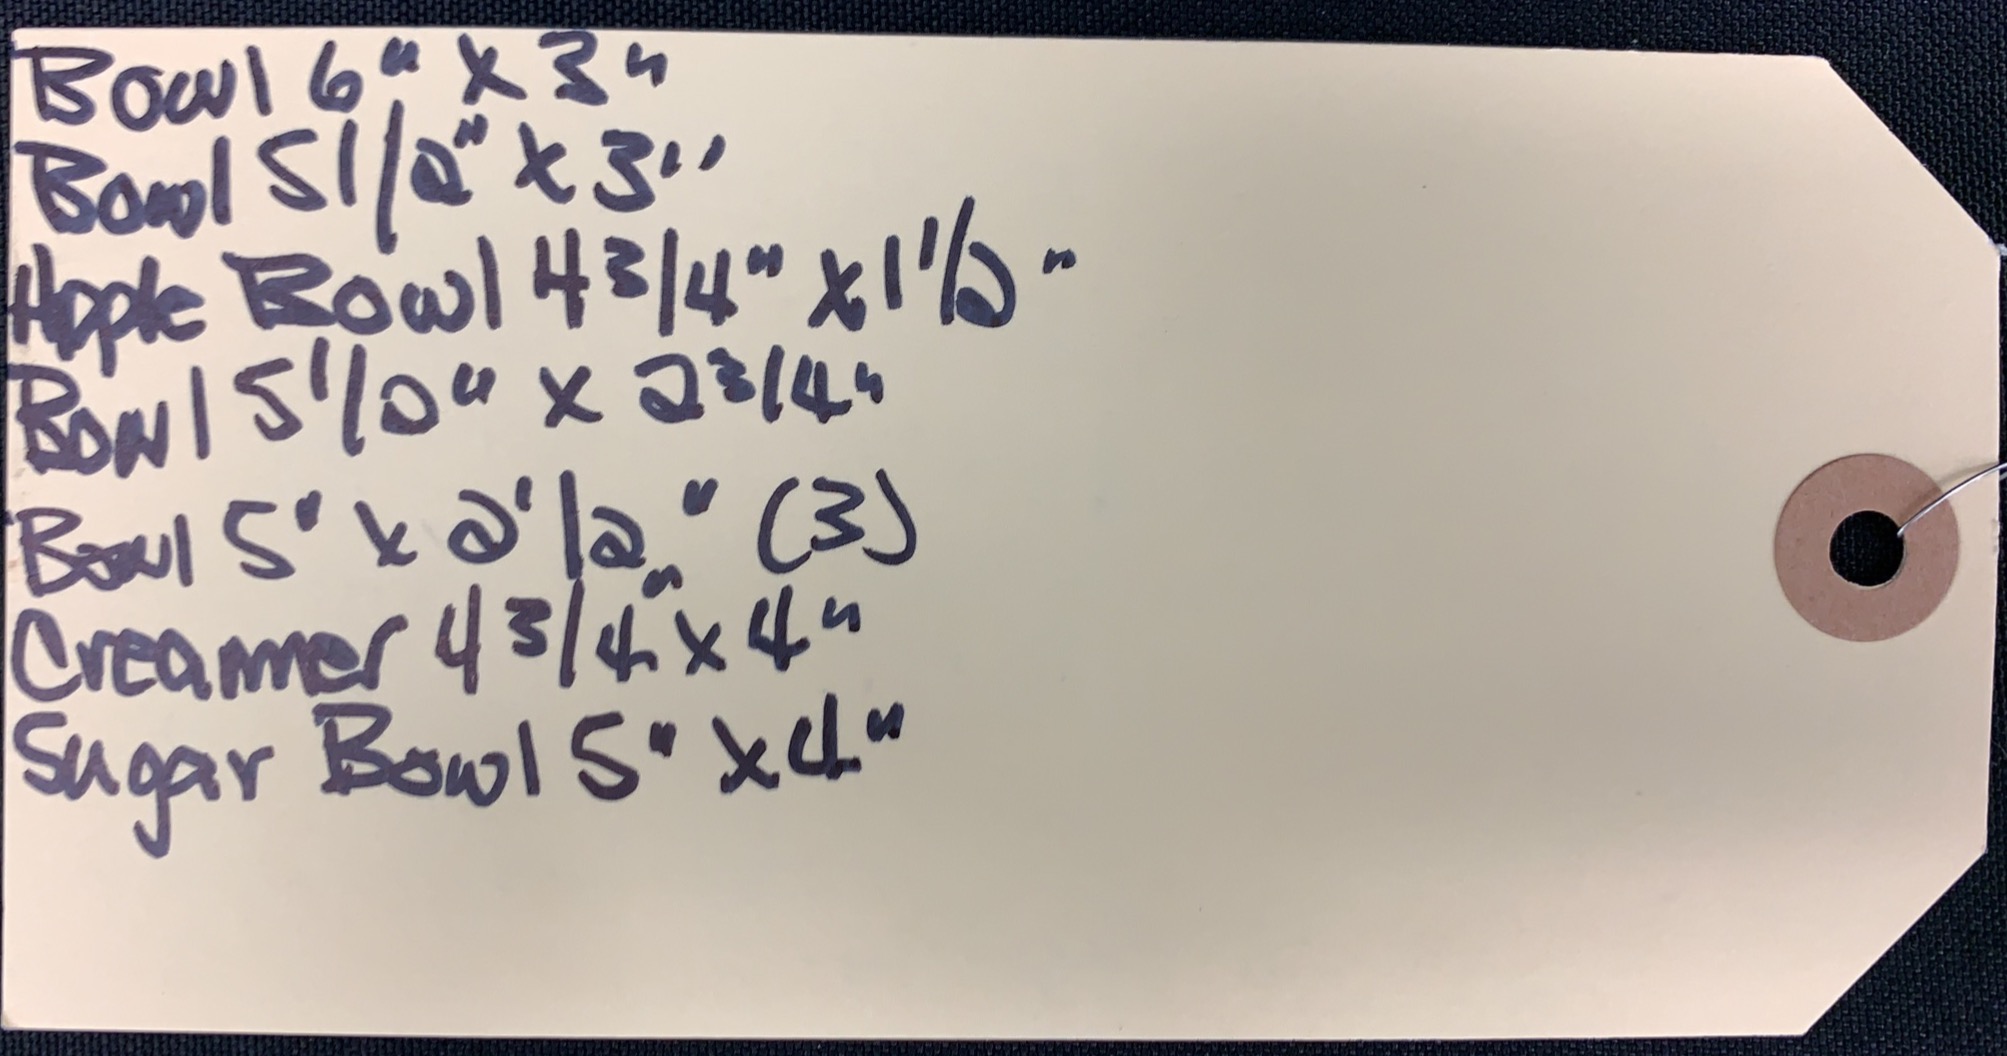 Bowl 6" x 3"
Bowl 5 1/2" x 3"
Apple Bowl 4 3/4" x 1 1/2"
Bowl 5 1/2" x 2 3/4"
Bowl 5" x 2 1/2" (3)
Creamer 4 3/4" x 4"
Sugar Bowl 5" x 4"